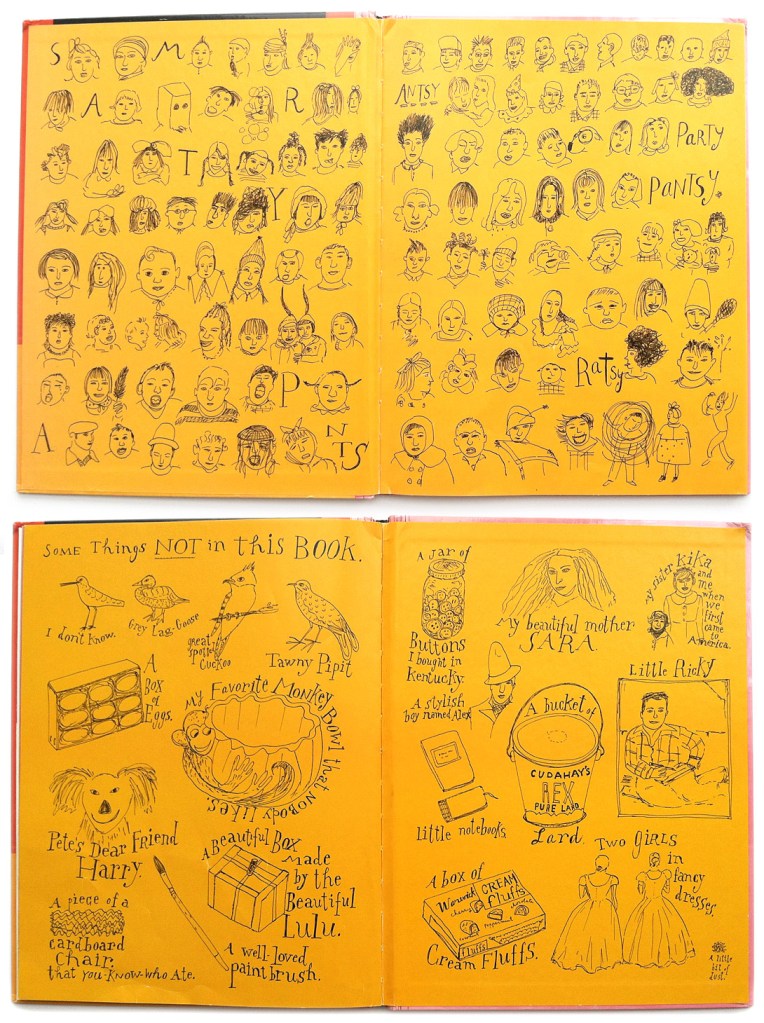 S M
A R
T
Y
P
A NTS
ANTSY
PARTY
PANTSY.
Ratsy
SOME Things NOT in this BOOK.
I don't Know.
Grey Lag Goose
great spotted Cuckoo
Tawny Pipit
A
Box
of
Eggs.
My Favorite Monkey Bowl that nobody likes.
Pete's Dear Friend
Harry.
A Beautiful Box
Made
by the
Beautiful
LULU.
A piege of a
cardboard
Chair.
that you-know-who Ate.
A well-loved
paintbrush.
A Jar of
Buttons
I bought in
Kentucky.
My beautiful mother
SARA.
my sister Kika
and
me
when
we
first
came
to
America.
A stylish
boy named Alex
A bucket of
CUDAHAY'S
REX
PURE LARD
Lard.
Little Ricky
Little notebooks.
Two GIRLS
in
fancy
dresses.
A box of
Warwick CREAM
Fluffs
Fluffs
Cream Fluffs.
A little
bit of
dust.